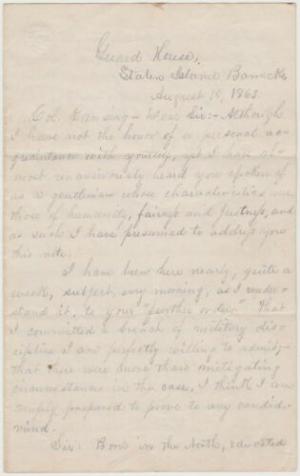 Guard House,
Staten Island Barracks
August 10, 1863.
Col. Lansing - Dear Sir:- Although
I have not the honor of a personal ac-
quaintance with yourself, yet I have al-
most unanimously heard you spoken of
as a gentleman whose characteristics are
those of humanity, fairness and justness, and
as such I have presumed to address you
this note.
I have been here nearly, quite a
week, subject, every morning, as I under-
stand it, to your "further order." That
I committed a breach of military dis-
cipline I am perfectly willing to admit;
that there were more than mitigating
circumstances in the case, I think I am
amply prepared to prove to any candid
mind.
Sir: Born in the North, educated